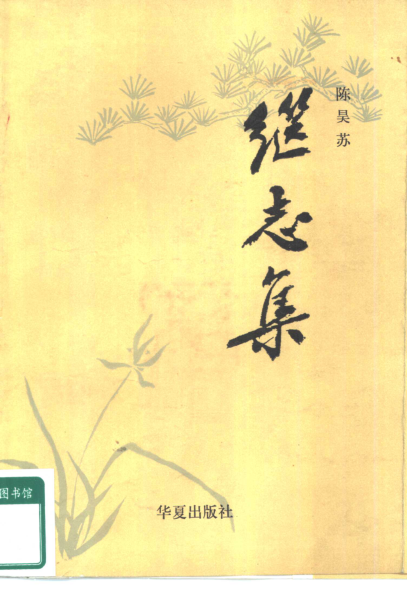 陈昊苏
继志集
华夏出版社
图书馆